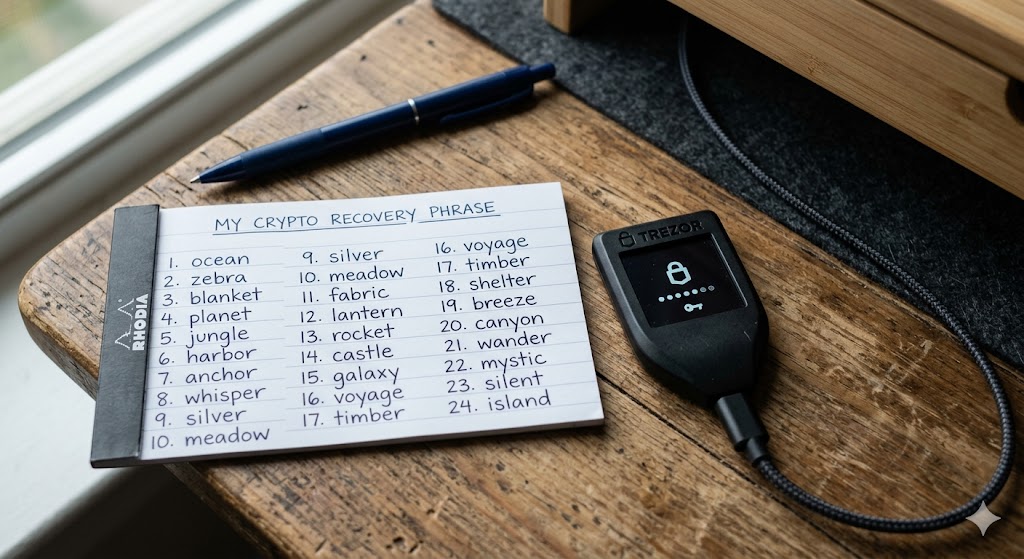 MY CRYPTO RECOVERY PHRASE
1. ocean
2. zebra
3. blanket
4. planet
5. jungle
6. harbor
7. anchor
8. whisper
9. silver
10. meadow
9. silver
10. meadow
11. fabric
12. lantern
13. rocket
14. castle
15. galaxy
16. voyage
17. timber
16. voyage
17. timber
18. shelter
19. breeze
20. canyon
21. wander
22. mystic
23. silent
24. island
RHODIA
TREZOR